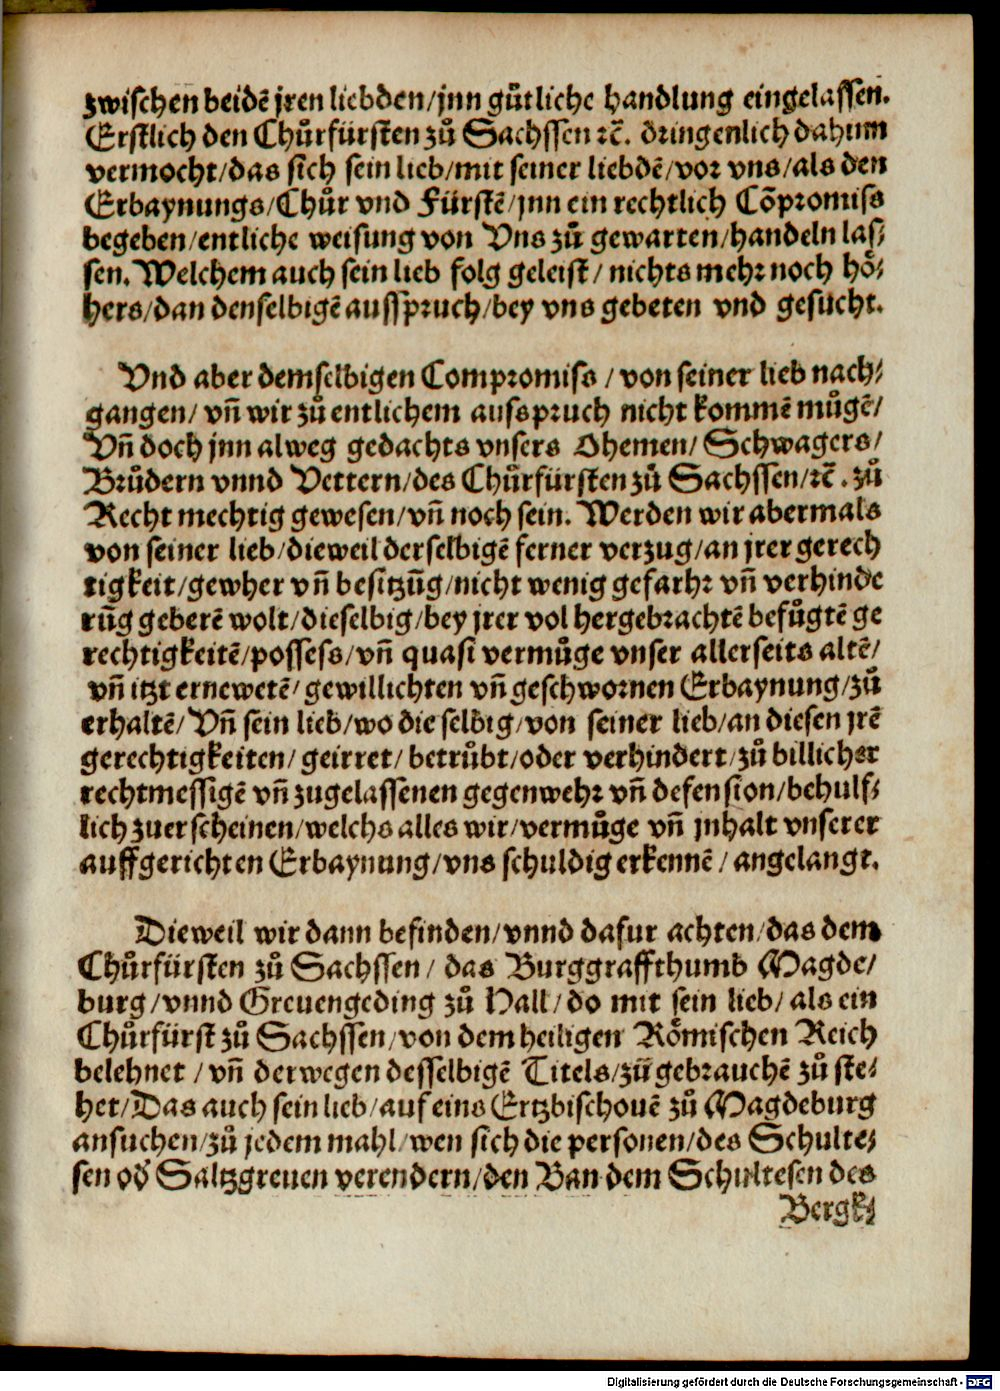 zwischen beidē jren liebden/jnn gůtliche handlung eingelassen.
Erstlich den Chůrfürsten zů Sachssen ꝛc̄. dringenlich dahum
vermocht/das sich sein lieb/mit seiner liebdē/vor vns/als den
Erbaynungs/Chůr vnd Fürstē/jnn ein rechtlich Cōpromiss
begeben/entliche weisung von Vns zů gewarten/handeln las⸗
sen. Welchem auch sein lieb folg geleist/ nichts mehr noch hö⸗
hers/dan denselbigē ausspruch/bey vns gebeten vnd gesucht.
Vnd aber demselbigen Compromiss / von seiner lieb nach⸗
gangen/ vn̄ wir zů entlichem ausspruch nicht kommē můgē/
Vn̄ doch jnn alweg gedachts vnsers Ohemen/ Schwagers/
Brůdern vnnd Vettern/des Chůrfürsten zů Sachssen/ꝛc̄. zů
Recht mechtig gewesen/vn̄ noch sein. Werden wir abermals
von seiner lieb/dieweil derselbigē ferner verzug/an jrer gerech
tigkeit/gewher vn̄ besitzūg/nicht wenig gefarhr vn̄ verhinde
rūg geberē wolt/dieselbig/bey jrer vol hergebrachtē befůgtē ge
rechtigkeitē/possess/vn̄ quasi vermůge vnser allerseits altē/
vn̄ itzt ernewetē/ gewillichten vn̄ geschwornen Erbaynung/zů
erhaltē/ Vn̄ sein lieb/wo die selbig/von seiner lieb/an diesen jrē
gerechtigkeiten/ geirret/ betrůbt/oder verhindert/zů billicher
rechtmessigē vn̄ zugelassenen gegenwehr vn̄ defension/behulf⸗
lich zuerscheinen/welchs alles wir/vermůge vn̄ jnhalt vnserer
auffgerichten Erbaynung/vns schuldig erkennē/ angelangt.
Dieweil wir dann befinden/vnnd dafur achten/das dem
Chůrfürsten zů Sachssen/ das Burggraffthumb Magde/
burg/vnnd Greuengeding zů Hall/do mit sein lieb/als ein
Chůrfürst zů Sachssen/von dem heiligen Römischen Reich
belehnet / vn̄ derwegen desselbigē Titels/zū gebrauchē zů ste⸗
het/Das auch sein lieb/auf eins Ertzbischouē zů Magdeburg
ansuchen/zů jedem mahl/wen sich die personen/des Schulte⸗
sen od̄ Saltzgreuen verendern/den Ban dem Schultesen des
Bergk⸗
Digitalisierung gefördert durch die Deutsche Forschungsgemeinschaft - DFG